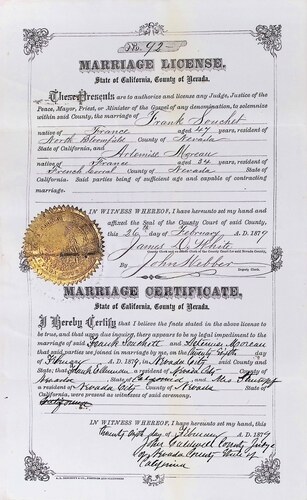 No. 92
MARRIAGE LICENSE.
State of California, County of Nevada.
These Presents are to authorize and license any Judge, Justice of the
Peace, Mayor, Priest, or Minister of the Gospel of any denomination, to solemnize
within said County, the marriage of Frank Souchet
native of France aged 47 years, resident of
North Bloomfield County of Nevada
State of California, and Heloise Moreau
native of France aged 24 years, resident of
French Corral County of Nevada State of
California. Said parties being of sufficient age and capable of contracting
marriage.
IN WITNESS WHEREOF, I have hereunto set my hand and
affixed the Seal of the County Court of said County,
this 26th day of February A. D. 1879
James D. White
By John Webber
Deputy Clerk.
MARRIAGE CERTIFICATE.
State of California, County of Nevada.
I Hereby Certify that I believe the facts stated in the above license to
be true, and that upon due inquiry, there appears to be no legal impediment to the
marriage of said Frank Souchett and Moreau
that said parties were joined in marriage by me, on the twenty sixth day
of February A. D. 1879, in Nevada City County and
State; that Frank a resident of Nevada City County of
Nevada, State of California and Mrs
a resident of Nevada City of Nevada State of
California, were present as witnesses of said ceremony.
IN WITNESS WHEREOF, I have hereunto set my hand this
twenty sixth day of February A. D. 1879
John Caldwell County Judge
of Nevada County State of
California